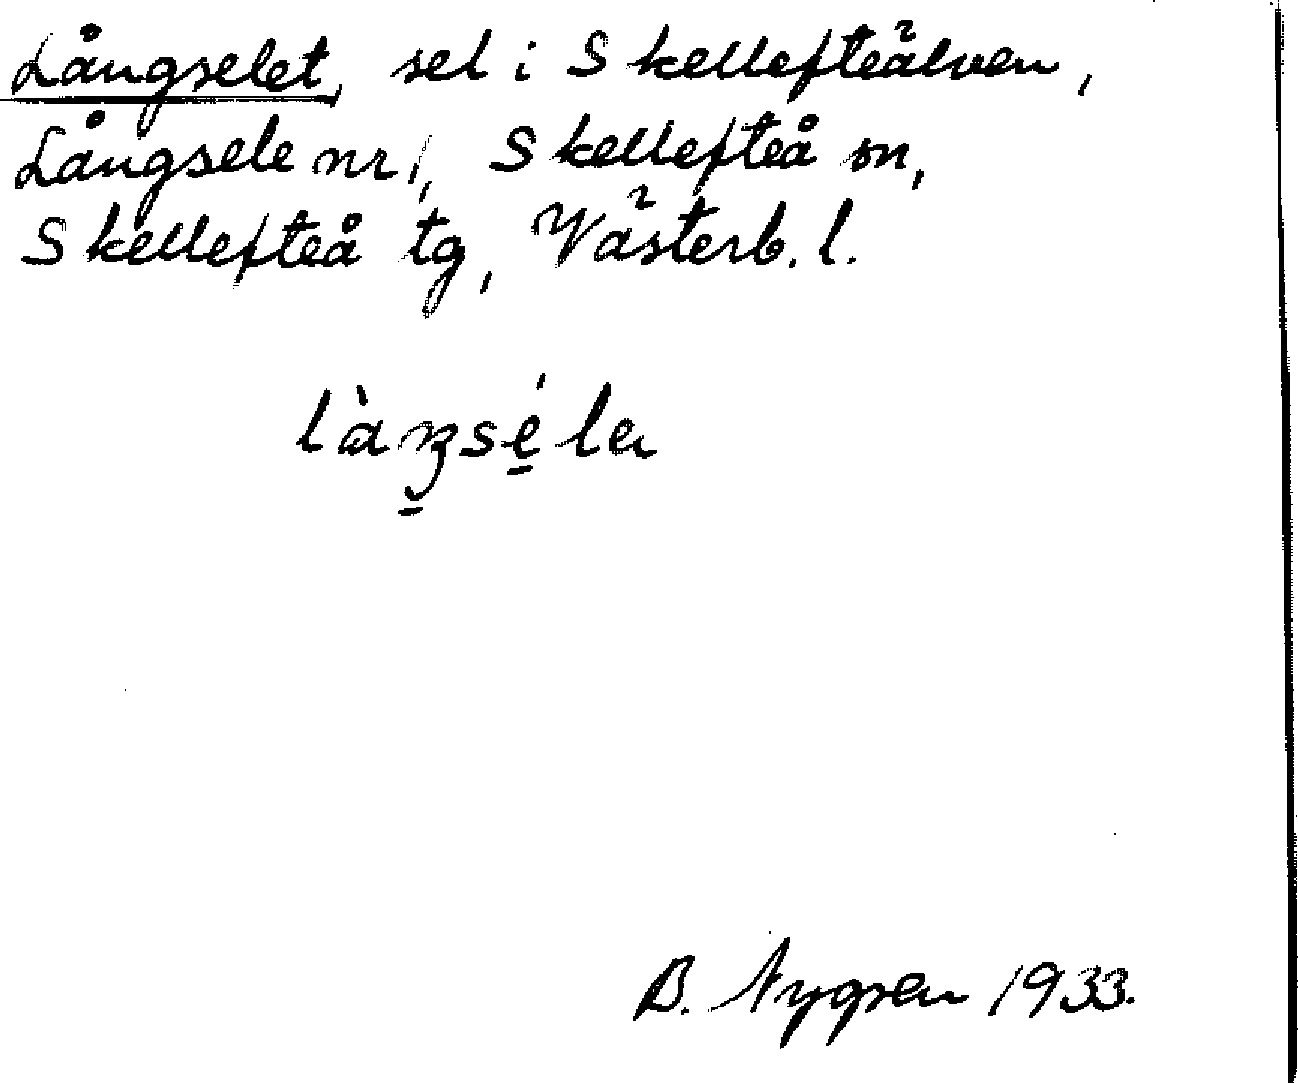 Långselet, sel i Skellefteälven,
Långsele nr 1, Skellefteå sn,
Skellefteå tg, Västerb. l.
B. Nygren 1933.